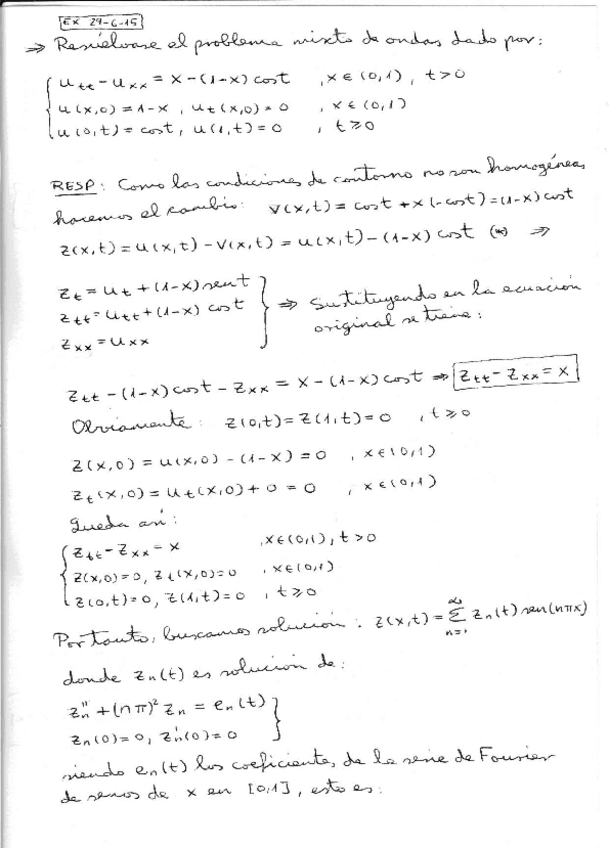 EX 29-6-15
⇒ Resuélvase el problema mixto de ondas dado por:
u_tt - u_xx = x - (1-x) cost , x ∈ (0,1), t > 0
u(x,0) = 1-x, u_t(x,0) = 0 , x ∈ (0,1)
u(0,t) = cost, u(1,t) = 0 , t ≥ 0
RESP: Como las condiciones de contorno no son homogéneas,
hacemos el cambio: V(x,t) = cost + x(-cost) = (1-x) cost
z(x,t) = u(x,t) - V(x,t) = u(x,t) - (1-x) cost (*) ⇒
z_t = u_t + (1-x) sent
z_tt = u_tt + (1-x) cost
z_xx = u_xx
⇒ Sustituyendo en la ecuación
original se tiene:
z_tt - (1-x) cost - z_xx = x - (1-x) cost ⇒ z_tt - z_xx = x
Obviamente: z(0,t) = z(1,t) = 0 , t ≥ 0
z(x,0) = u(x,0) - (1-x) = 0 , x ∈ (0,1)
z_t(x,0) = u_t(x,0) + 0 = 0 , x ∈ (0,1)
Queda así:
z_tt - z_xx = x , x ∈ (0,1), t > 0
z(x,0) = 0, z_t(x,0) = 0 , x ∈ (0,1)
z(0,t) = 0, z(1,t) = 0 , t ≥ 0
Por tanto, buscamos solución: z(x,t) = ∑_{n=1}^∞ z_n(t) sen(nπx)
donde z_n(t) es solución de:
z_n'' + (nπ)² z_n = e_n(t)
z_n(0) = 0, z_n'(0) = 0
siendo e_n(t) los coeficientes de la serie de Fourier
de senos de x en [0,1], esto es: